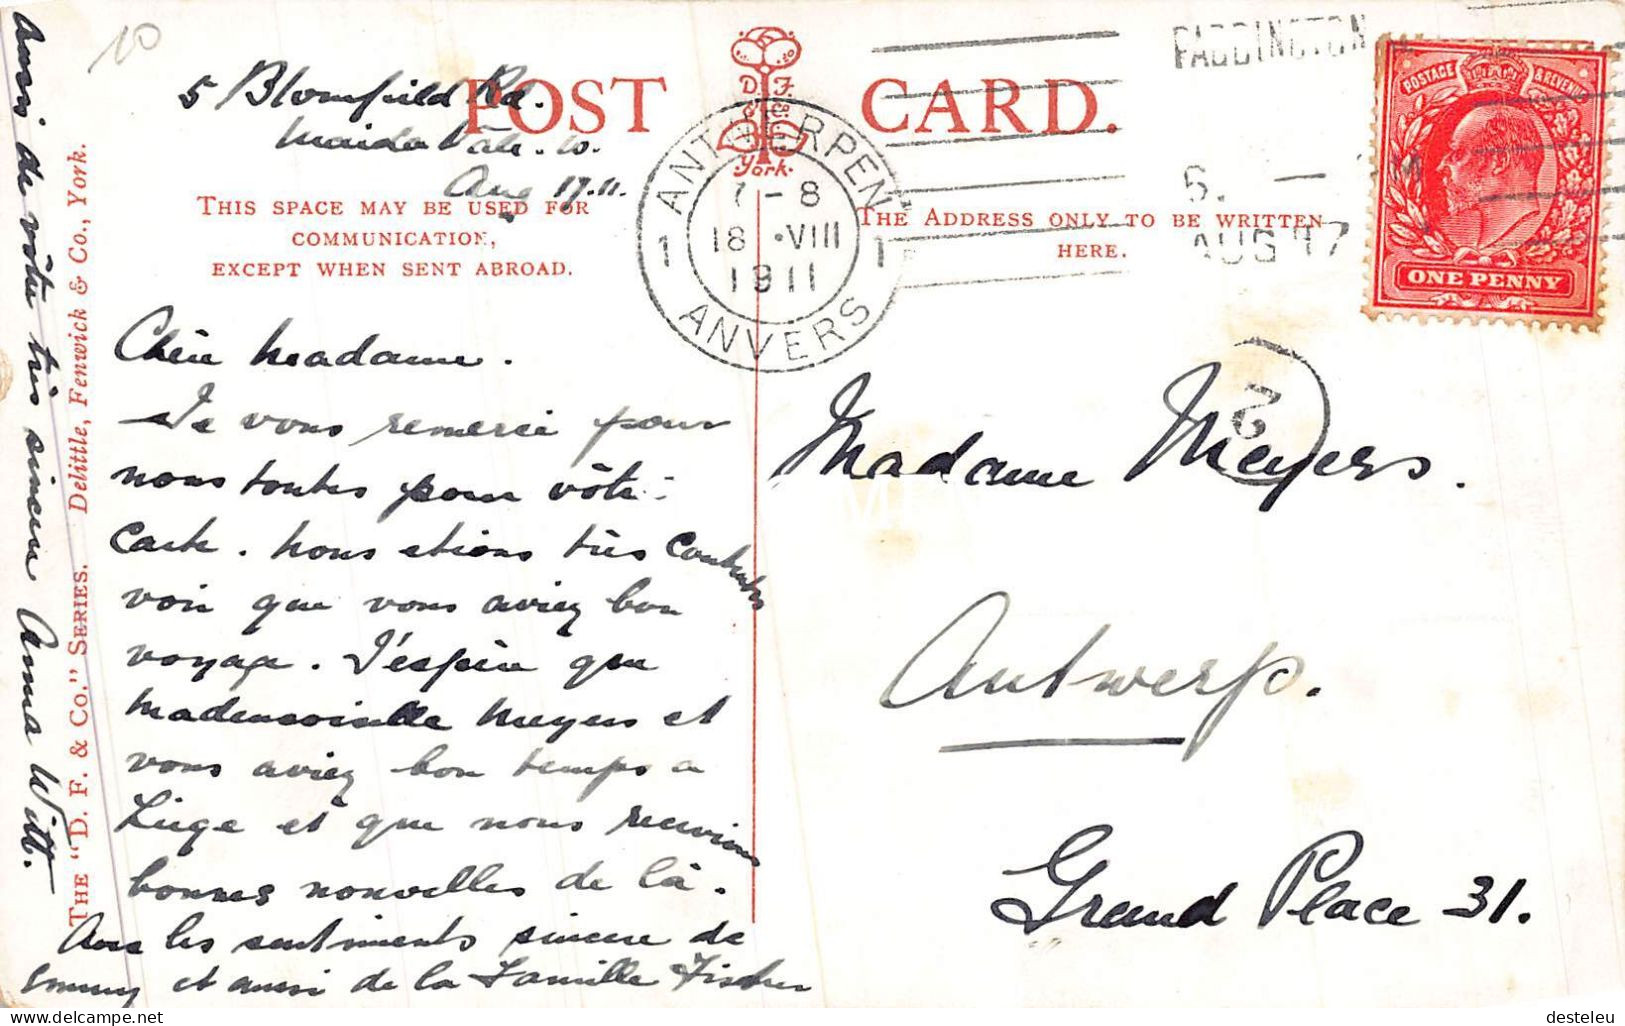 10
5 Blomfield Rd.
Maida Vale. W.
Aug 17. 11.
POST CARD.
D. F.
York.
THIS SPACE MAY BE USED FOR
COMMUNICATION,
EXCEPT WHEN SENT ABROAD.
THE ADDRESS ONLY TO BE WRITTEN
HERE.
ANTWERPEN
7 - 8
1 18 • VIII 1
1911
ANVERS
PADDINGTON
AUG 17
POSTAGE & REVENUE
ONE PENNY
Chère Madame.
Je vous remercie pour
nous toutes pour vôtre
carte. Nous etions très contentes
voir que vous aviez bon
voyage. J'espère que
Mademoiselle Meyers et
vous aviez bon temps a
Liège et que nous recevions
bonnes nouvelles de là.
Avec les sentiments sincere de
Emmy et aussi de la Famille Fischer
aussi de vôtre très sincere Anna Witt.
THE "D. F. & Co." SERIES. Delittle, Fenwick & Co., York.
Madame Meyers.
Antwerp.
Grand Place 31.
desteleu
delcampe.net